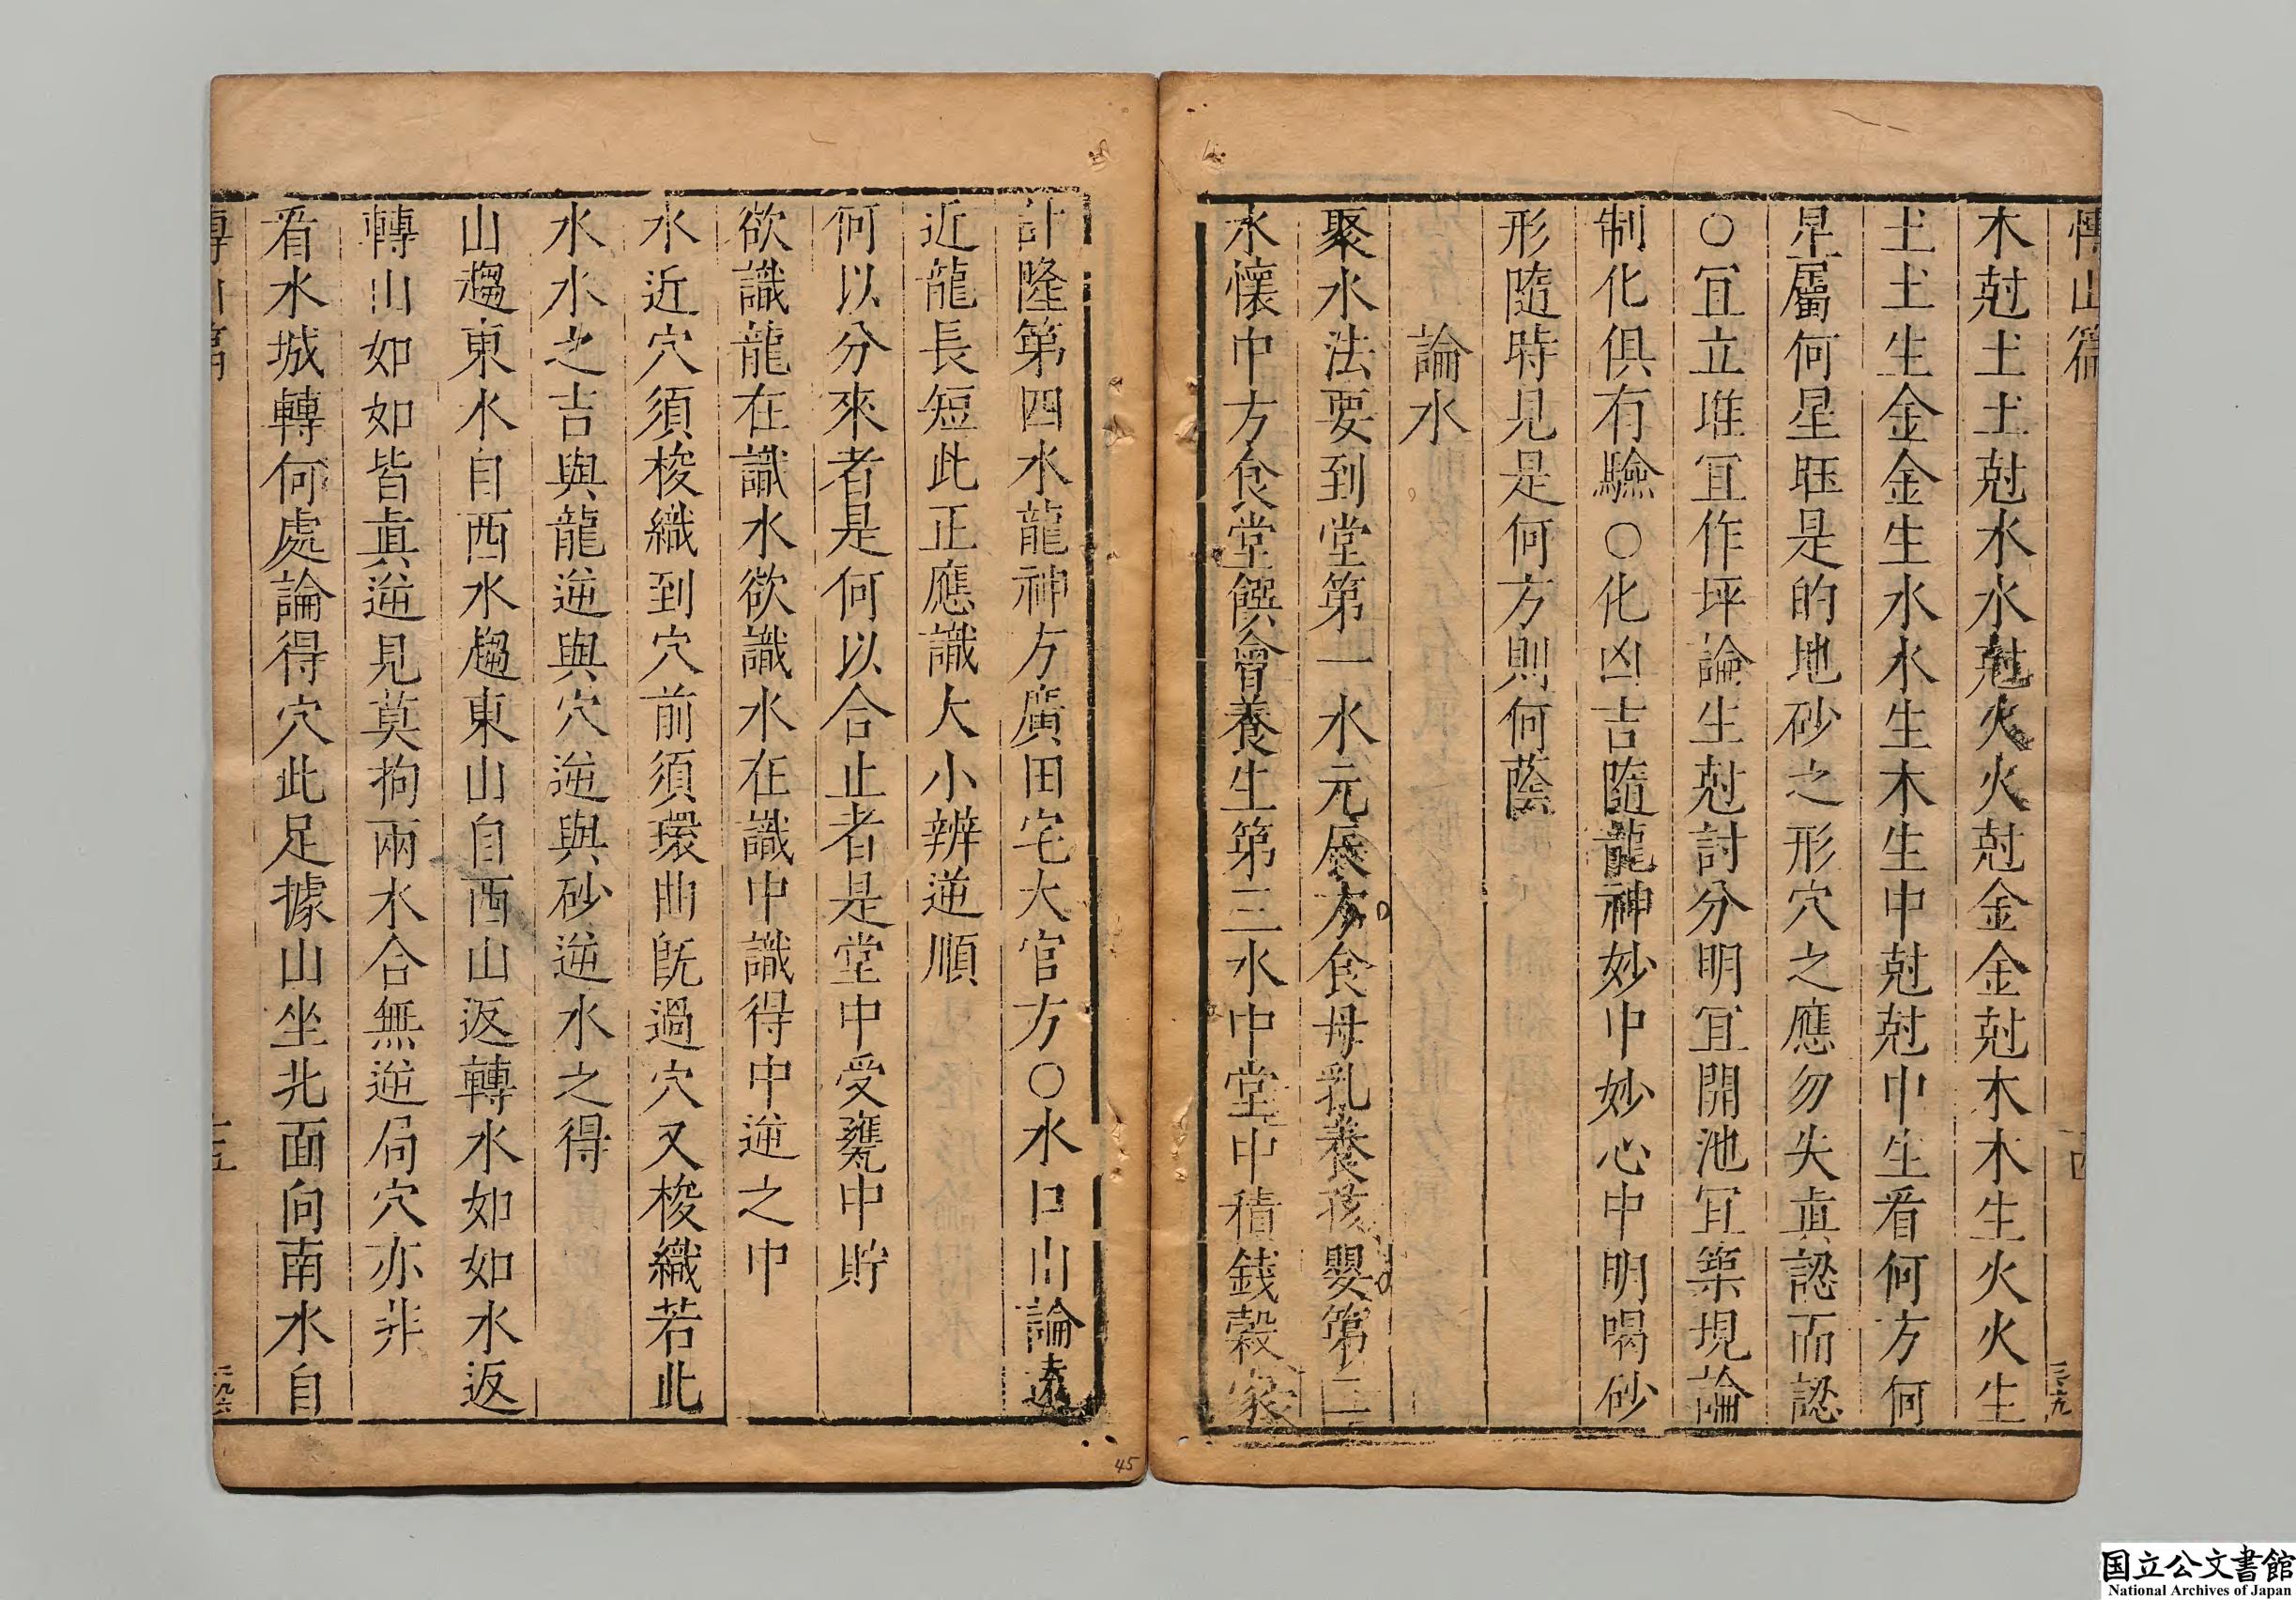 博山篇 十四
木尅土土尅水水尅火火尅金金尅木木生火火生
土土生金金生水水生木生中尅尅中生看何方何
星屬何星旺是的地砂之形穴之應勿失眞認而認
○宜立堆宜作坪論生尅討分明宜開池宜築堤論
制化俱有驗○化凶吉隨龍神妙中妙心中明喝砂
形隨時見是何方則何蔭
論水
聚水法要到堂第一水元辰方食母乳養孩嬰第二
水懷中方食堂饌會養生第三水中堂中積錢穀家
計隆第四水龍神方廣田宅大官方○水口山論遠
近龍長短此正應識大小辨逆順
何以分來者是何以合止者是堂中受甕中貯
欲識龍在識水欲識水在識中識得中逆之中
水近穴須梭織到穴前須環曲旣過穴又梭織若此
水水之吉與龍逆與穴逆與砂逆水之得
山趨東水自西水趨東山自西山返轉水如如水返
轉山如如皆眞逆見莫拘兩水合無逆局穴亦非
看水城轉何處論得穴此足據山坐北面向南水自
博山篇 十五
45
国立公文書館
National Archives of Japan